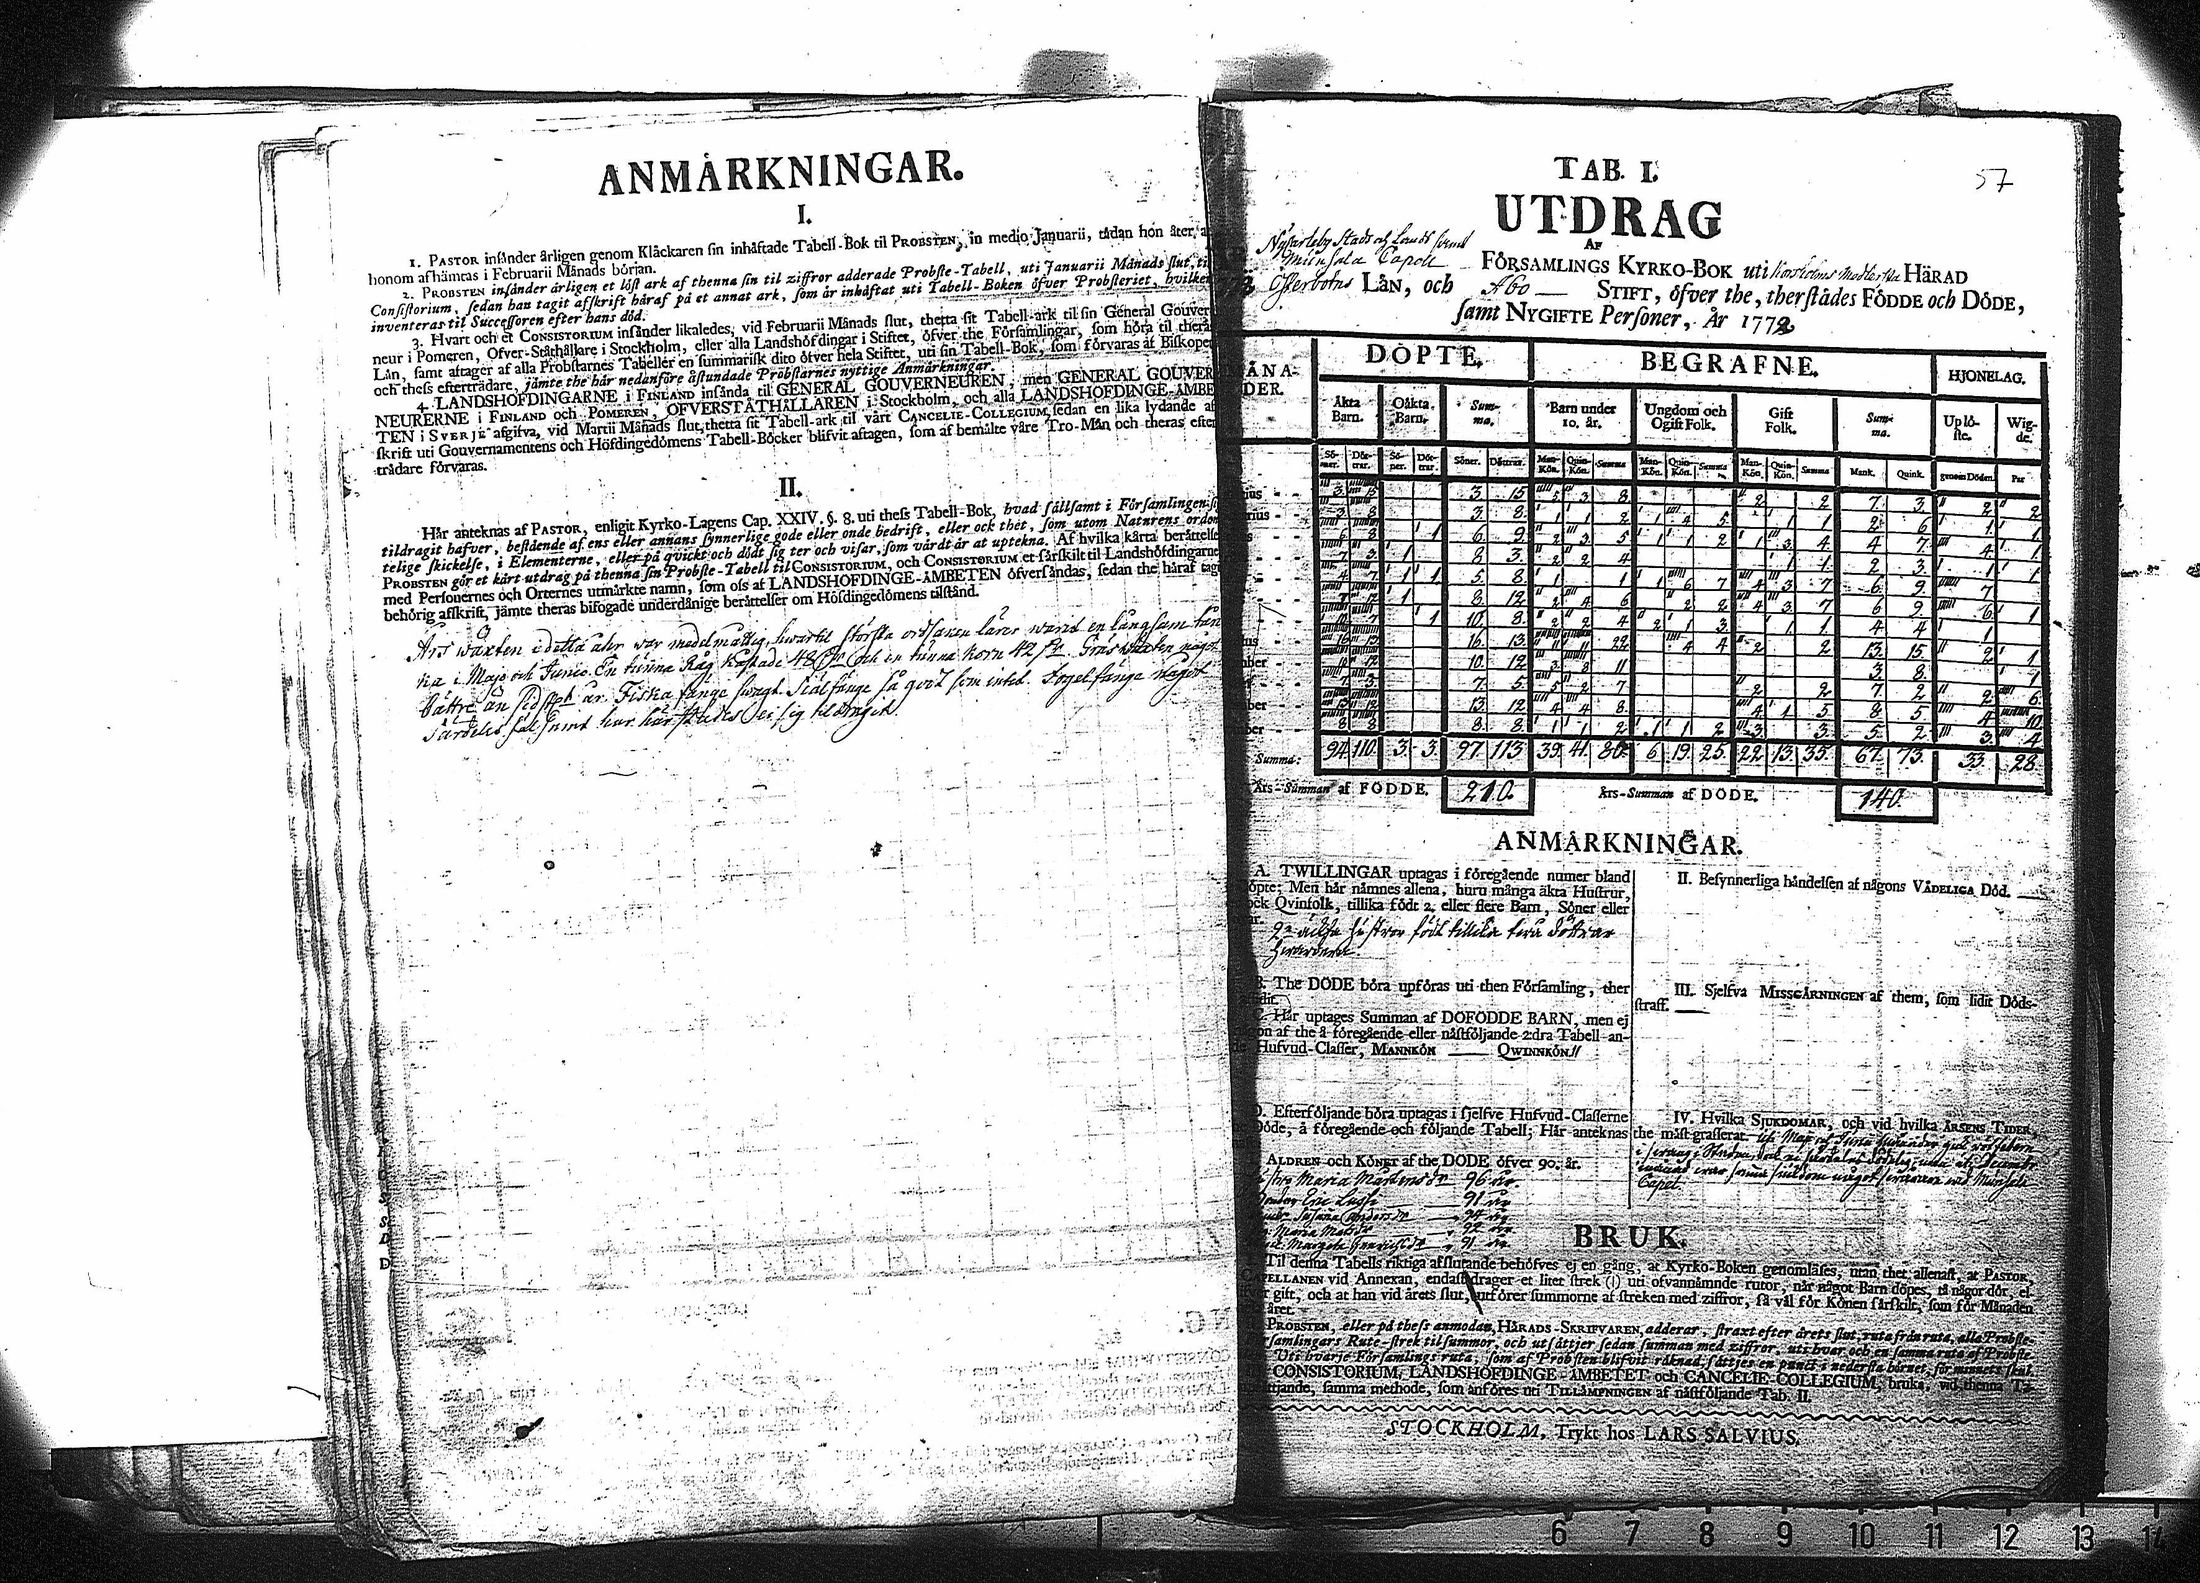 ANMÄRKNINGAR.
I.
1. PASTOR insänder årligen genom Klåckaren sin inhäftade Tabell-Bok til PROBSTEN, in medio Januarii, tådan hon åter, a
honom afhämtas i Februarii Månads början.
2. PROBSTEN insänder årligen et löst ark af thenna sin til ziffror adderade Probste-Tabell, uti Januarii Månads slut, til
Consistorium, sedan han tagit afskrift häraf på et annat ark, som är inhäftat uti Tabell-Boken öfver Probsteriet, hvilken
inventeras til Successoren efter hans död.
3. Hvart och et CONSISTORIUM insänder likaledes, vid Februarii Månads slut, thetta sit Tabell-ark til sin General Gouver-
neur i Pomeren, Öfver-Ståthållare i Stockholm, eller alla Landshöfdingar i Stiftet, öfver the Församlingar, som höra til theras
Län, samt aftager af alla Probstarnes Tabeller en summarisk dito öfver hela Stiftet, uti sin Tabell-Bok, som förvaras af Biskopen
och thess efterträdare, jämte the här nedanföre åstundade Probstarnes nyttige Anmärkningar.
4. LANDSHÖFDINGARNE i FINLAND insända til GENERAL GOUVERNEUREN, men GENERAL GOUVER-
NEURERNE i FINLAND och POMEREN, ÖFVERSTÅTHÅLLAREN i Stockholm, och alla LANDSHÖFDINGE-ÄMBE-
TEN i SVERJE afgifva, vid Martii Månads slut, thetta sit Tabell-ark til vårt CANCELIE-COLLEGIUM, sedan en lika lydande af-
skrift uti Gouvernamentens och Höfdingedömens Tabell-Böcker blifvit aftagen, som af bemälte våre Tro-Män och theras efter-
trädare förvaras.
II.
Här anteknas af PASTOR, enligit Kyrko-Lagens Cap. XXIV. §. 8. uti thess Tabell-Bok, hvad sällsamt i Församlingen si
tildragit hafver, bestående af ens eller annans synnerlige gode eller onde bedrift, eller ock thet, som utom Naturens ordon
telige skickelse, i Elementerne, eller på quickt och dödt sig ter och visar, som värdt är at uptekna. Af hvilka kärta berättelse
PROBSTEN gör et kärt utdrag på thenna sin Probste-Tabell til CONSISTORIUM, och CONSISTORIUM et särskilt til Landshöfdingarne
med Personernes och Orternes utmärkte namn, som oss af LANDSHÖFDINGE-ÄMBETEN öfversändas, sedan the häraf tag
behörig afskrift, jämte theras bifogade underdånige berättelser om Höfdingedömens tilstånd.
Års wäxten i detta åhr war medelmåttig, hwartil största ordsaken lärer warit en långsam kän
ka i Majo och Junio. En tunna Råg kåstade 48 och en tunna korn 42. Gräswäxten något
bättre än sidst år. Fiska fänge swagt. Siälfänge så godt som intet. Fogelfänge något
Särdeles sälsamt har här städes ei sig tildragit.
57
TAB. I.
UTDRAG
AF
Nycarleby Stads och Lands samt
Munsala Capell FÖRSAMLINGS KYRKO-BOK uti Korsholms Medlersta HÄRAD
Österbotns LÄN, och Åbo STIFT, öfver the, therstädes FÖDDE och DÖDE,
samt NYGIFTE Personer, År 1772
MÅNA-
DER. DÖPTE. BEGRAFNE. HJONELAG.
Äkta Barn. Oäkta Barn. Summa. Barn under 10. år. Ungdom och Ogift Folk. Gift Folk. Summa. Uplöste. Wigde.
Söner. Döttrar. Söner. Döttrar. Söner. Döttrar. Man-Kön. Quin-Kön. Summa Man-Kön. Quin-Kön. Summa Man-Kön. Quin-Kön. Summa Mank. Quink. genom Döden. Par
3 15 3. 15 5 3 8 2 2 7. 3 2 2
3 8 3. 8 1 1 2 1 4 5 1 1 2 6 1 1
6 8 1 6 9 2 3 5 1 1 2 1 3 4 4 7 4 1
7 3 1 8 3 2 2 4 1 1 2 3 1 1
4 7 1 1 5 8 1 1 1 6 7 4 3 7 6 9 7
7 12 1 8 12 2 4 6 2 2 4 3 7 6 9 6 1
10 7 1 10 8 2 2 4 2 1 3 1 1 4 4 1
16 13 16 13 22 4 4 2 2 13 15 2 1
10 12 10 12 3 8 11 3 8 1
7 5 7 5 5 2 7 2 2 7 2 2 6
13 12 13 12 4 4 8 4 1 5 8 5 4 10
8 8 8 8 1 1 2 1 1 2 3 3 5 2 3 4
Summa: 94 110. 3 3 97 113 39. 41. 80. 6 19. 25. 22 13. 35. 67. 73. 33 28
Års-Summan af FÖDDE. 210. Års-Summan af DÖDE. 140.
ANMÄRKNINGAR.
A. TWILLINGAR uptagas i föregående numer bland
Döpte; Men här nämnes allena, huru många äkta Hustrur,
ock Qvinfolk, tillika födt 2. eller flere Barn, Söner eller
2ne äckta hustror födt tillika twå döttrar
hwardera.
B. The DÖDE böra upföras uti then Församling, ther
C. Här uptages Summan af DÖFÖDDE BARN, men ej
någon af the å föregående eller nästföljande 2dra Tabell an-
Hufvud-Classer, MANNKÖN —— QWINNKÖN //
D. Efterföljande böra uptagas i sjelfve Hufvud-Classerne
Döde, å föregående och följande Tabell; Här anteknas
ÅLDREN och KÖNET af the DÖDE öfver 90. år.
Maria Mårtensdr 96 år.
Eric 91 år
Susanna Andersdr 94 år
Maria Matsdr 92 år.
Margeta Henrichsdr 91 år
II. Besynnerliga händelsen af någons VÅDELIGA Död. ——
III. Sjelfva MISSGÄRNINGEN af them, som lidit Döds-
straff. ——
IV. Hvilka SJUKDOMAR, och vid hvilka ÅRSENS TIDER,
the mäst grasserat.
Capel.
BRUK.
Til denna Tabells riktiga afslutande behöfves ej en gång, at Kyrko-Boken genomläses, utan thet allenast, at PASTOR,
CAPELLANEN vid Annexan, endast drager et litet strek (|) uti ofvannämnde rutor, när något Barn döpes, tå någor dör, el-
gift, och at han vid årets slut, utförer summorne af streken med ziffror, så väl för Könen särskilt, som för Månaden
året.
PROBSTEN, eller på thess anmodan, HÄRADS-SKRIFVAREN, adderar, straxt efter årets slut, ruta från ruta, alla Probste-
samlingars Rute-strek til summor, och utsättjer sedan summan med ziffror, uti hvar och en samma ruta af Probste-
Uti hvarje Församlings ruta, som af Probsten blifvit räknad, sättjes en punct i nedersta hörnet, för minnets skul.
CONSISTORIUM, LANDSHÖFDINGE-ÄMBETET och CANCELIE-COLLEGIUM, bruka, vid thenna Ta-
ttjande, samma methode, som anföres uti TILLÄMPNINGEN af nästföljande Tab. II.
STOCKHOLM, Trykt hos LARS SALVIUS.
6 7 8 9 10 11 12 13 14